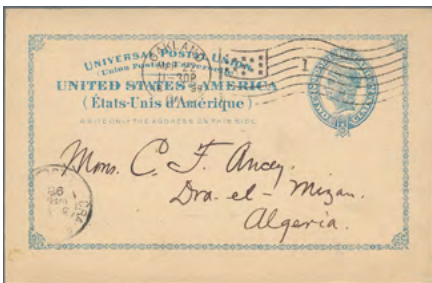 UNIVERSAL POSTAL UNION
(Union Postale Universelle)
OAKLAND
UNITED STATES OF AMERICA
(États-Unis d'Amérique)
WRITE ONLY THE ADDRESS ON THIS SIDE
1
Mons. C. F. Ancey.
Dra-el-Mizan.
Algeria.